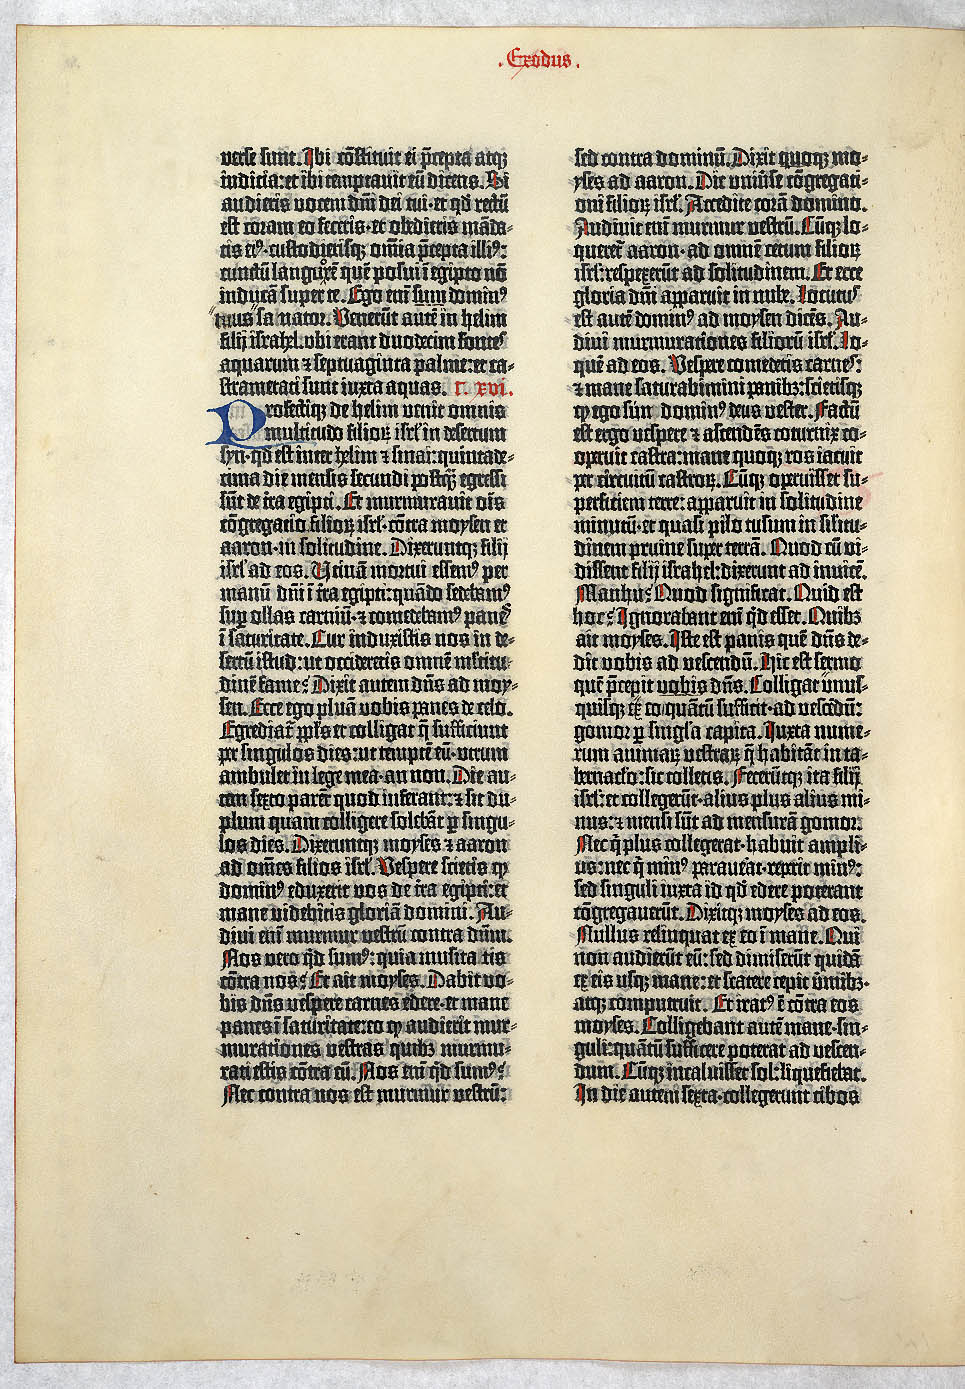 .Exodus.
verse sunt. Ibi cōstituit ei p̄cepta atqꝫ
iudicia: et ibi temptauit eū dicens. Si
audieris vocem dn̄i dei tui· et qd̄ rectū
est coram eo feceris· et obedieris māda-
tis eiꝰ· custodierisqꝫ om̄ia p̄cepta illiꝰ:
cunctū languorē quē posui ī egipto nō
inducā super te. Ego em̄ sum dominꝰ
tuus saluator. Venerūt autē in helim
filij israhel. ubi erant duodecim fontes
aquarum ⁊ septuaginta palme: et ca-
strametati sunt iuxta aquas. c. xvi.
Profectiqꝫ de helim venit omnis
multitudo filioꝝ isrl' in desertum
syn· qd̄ est inter helim ⁊ sinai: quintade-
cima die mensis secundi postq̄ȝ egressi
sūt de tr̄a egipti. Et murmurauit oīs
cōgregatio filioꝝ isrl' cōtra moysen et
aaron· in solitudine. Dixeruntqꝫ filij
isrl' ad eos. Utinā mortui essemꝰ per
manū dn̄i ī tr̄a egipti: quādo sedebamꝰ
sup̄ ollas carniū· ⁊ comedebamꝰ panes
ī saturitate. Cur induxistis nos in de-
sertū istud: ut occideretis omnē mĺtitu-
dinē fame? Dixit autem dn̄s ad moy-
sen. Ecce ego pluā vobis panes de celo.
Egrediat̄ ppl̄s et colligat q̄ sufficiunt
per singulos dies: ut temptē eū· utrum
ambulet in lege mea· an non. Die au-
tem sexto parent quod inferant: ⁊ sit du-
plum quam colligere solebāt p̱ singu-
los dies. Dixeruntqꝫ moyses ⁊ aaron
ad om̄es filios isrl'. Vespere scietis ꝙ
dominꝰ eduxerit vos de tr̄a egipti: et
mane videbitis gloriā domini. Au-
diui em̄ murmur vestrū contra dn̄m.
Nos vero qd̄ sumꝰ: quia musita tis
cōtra nos? Et ait moyses. Dabit vo-
bis dn̄s vespere carnes edere· et mane
panes ī saturitate: eo ꝙ audierit mur-
murationes vestras quibꝫ murmu-
rati estis cōtra eū. Nos em̄ qd̄ sumꝰ?
Nec contra nos est murmur vestrū:
sed contra dominū. Dixit quoqꝫ mo-
yses ad aaron. Dic vniuise cōgregati-
oni filioꝝ isrl'. Accedite corā domino.
Audiuit em̄ murmur vestrū. Cūqꝫ lo-
queret̄ aaron· ad omnē cetum filioꝝ
isrl': respexerūt ad solitudinem. Et ecce
gloria dn̄i apparuit in nube. Locutꝰ
est autē dominꝰ ad moysen dicēs. Au-
diui murmurationes filiorū isrl'. Lo-
quē ad eos. Vespere comedetis carnes:
⁊ mane saturabimini panibꝫ: scietisqꝫ
ꝙ ego sum dominꝰ deus vester. Factū
est ergo vespere ⁊ ascendēs coturnix co-
operuit castra: mane quoqꝫ ros iacuit
per circuitū castroꝝ. Cūqꝫ operuisset su-
perficiem terre: apparuit in solitudine
minutū· et quasi pilo tusum in simitu-
dinem pruine super terrā. Quod cū vi-
dissent filij israhel: dixerunt ad inuicē.
Manhu? Quod significat. Quid est
hoc? Ignorabant em̄ qd̄ esset. Quibꝫ
ait moyses. Iste est panis quē dn̄s de-
dit vobis ad vescendū. Hic est sermo
quē p̄cepit vobis dn̄s. Colligat vnus-
quisqꝫ ex eo quātū sufficit· ad vescēdū:
gomor p̱ singl'a capita. Iuxta nume-
rum animaꝝ vestraꝝ q̄ habitāt in ta-
bernaclo: sic tolletis. Fecerūtqꝫ ita filij
isrl': et collegerūt· alius plus alius mi-
nus: ⁊ mensi sūt ad mensurā gomor.
Nec q̄ plus collegerat· habuit ampli-
us: nec q̄ minꝰ parauerat· reperit minꝰ:
sed singuli iuxta id qd̄ edere poterant
cōgregauerūt. Dixitqꝫ moyses ad eos.
Nullus relinquat ex eo ī mane. Qui
non audierūt eū: sed dimiserūt quidā
ex eis usqꝫ mane: et scatere cepit v̄mibꝫ·
atqꝫ computruit. Et iratꝰ ē cōtra eos
moyses. Colligebant autē mane· sin-
guli: quātū sufficere poterat ad vescen-
dum. Cūqꝫ incaluisset sol: liquefiebat.
In die autem sexta· collegerunt cibos